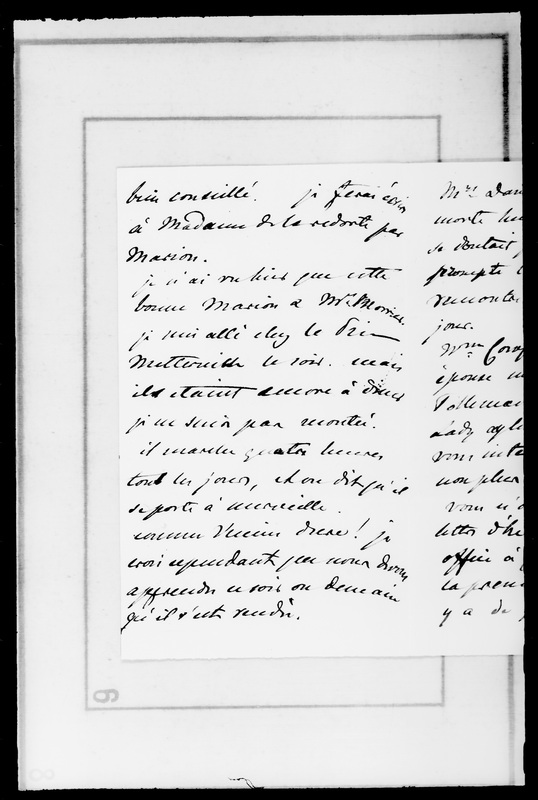 bien conseillé. je ferai écrire
à Madame de la redorte par
Marion.
je n'ai vu hier que cette
bonne Marion & Mrs
je suis allé chez le
Metternich le soir. mais
ils etaient encore à diner
je ne suis pas montée.
il marche quatre heures
tous les jours, et on dit qu'il
se porte à merveille.
comme Venise dure! je
crois cependant que nous devons
apprendre ce soir ou demain
qu'il s'est rendu.
Mrs
morte
se doutait
prompte
remontre
jour.
Wm
épouse
Lady
vous
non plus
vous n'
lettre d'
offrir à
la
y a de
6
8